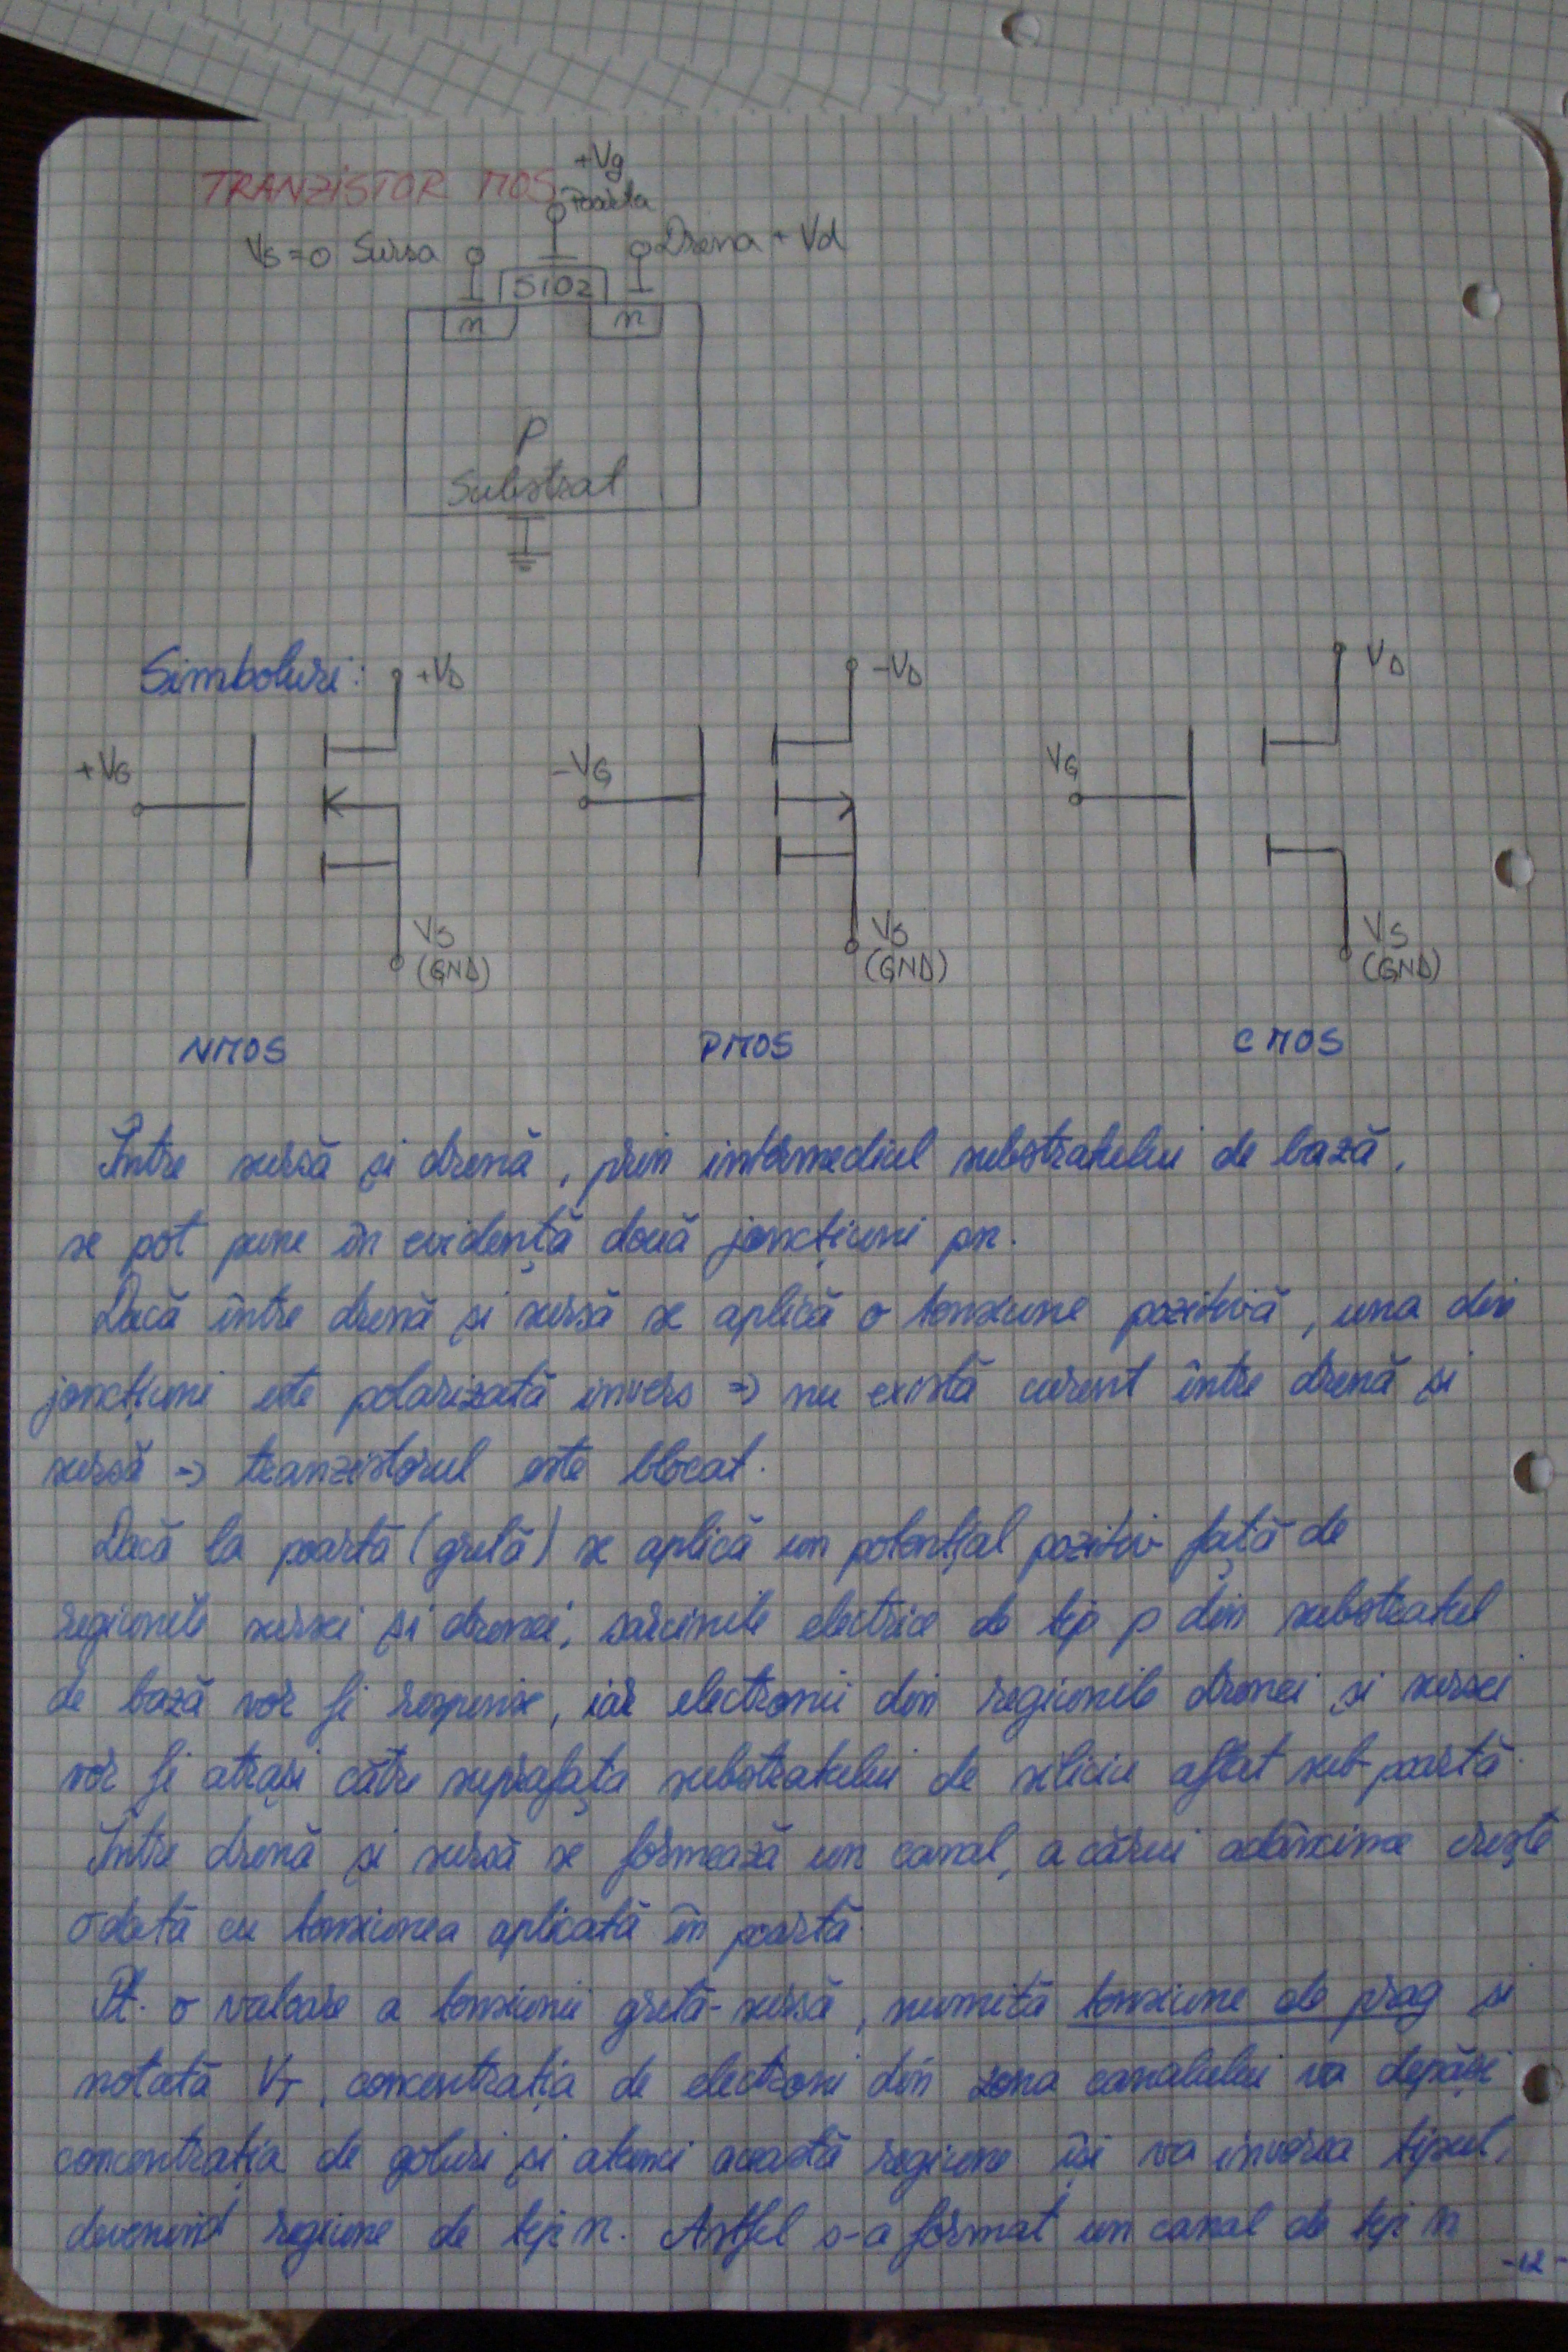 TRANZISTOR MOS
+Vg
Poarta
Vs=0 Sursa
Drena + Vd
SiO2
n
n
P
Substrat
Simboluri:
+VD
-VD
VD
+VG
-VG
VG
VS
(GND)
VS
(GND)
VS
(GND)
NMOS
PMOS
CMOS
Între sursă și drenă, prin intermediul substratului de bază,
se pot pune în evidență două joncțiuni pn.
Dacă între drenă și sursă se aplică o tensiune pozitivă, una din
joncțiuni este polarizată invers => nu există curent între drenă și
sursă => tranzistorul este blocat.
Dacă la poartă (grilă) se aplică un potențial pozitiv față de
regiunile sursei și drenei, sarcinile electrice de tip p din substratul
de bază vor fi respinse, iar electronii din regiunile drenei și sursei
vor fi atrași către suprafața substratului de siliciu aflat sub poartă.
Între drenă și sursă se formează un canal, a cărui adâncime crește
odată cu tensiunea aplicată în poartă.
Pt. o valoare a tensiunii grilă-sursă, numită tensiune de prag și
notată VT, concentrația de electroni din zona canalului va depăși
concentrația de goluri și atunci această regiune își va inversa tipul,
devenind regiune de tip n. Astfel s-a format un canal de tip n
-12-